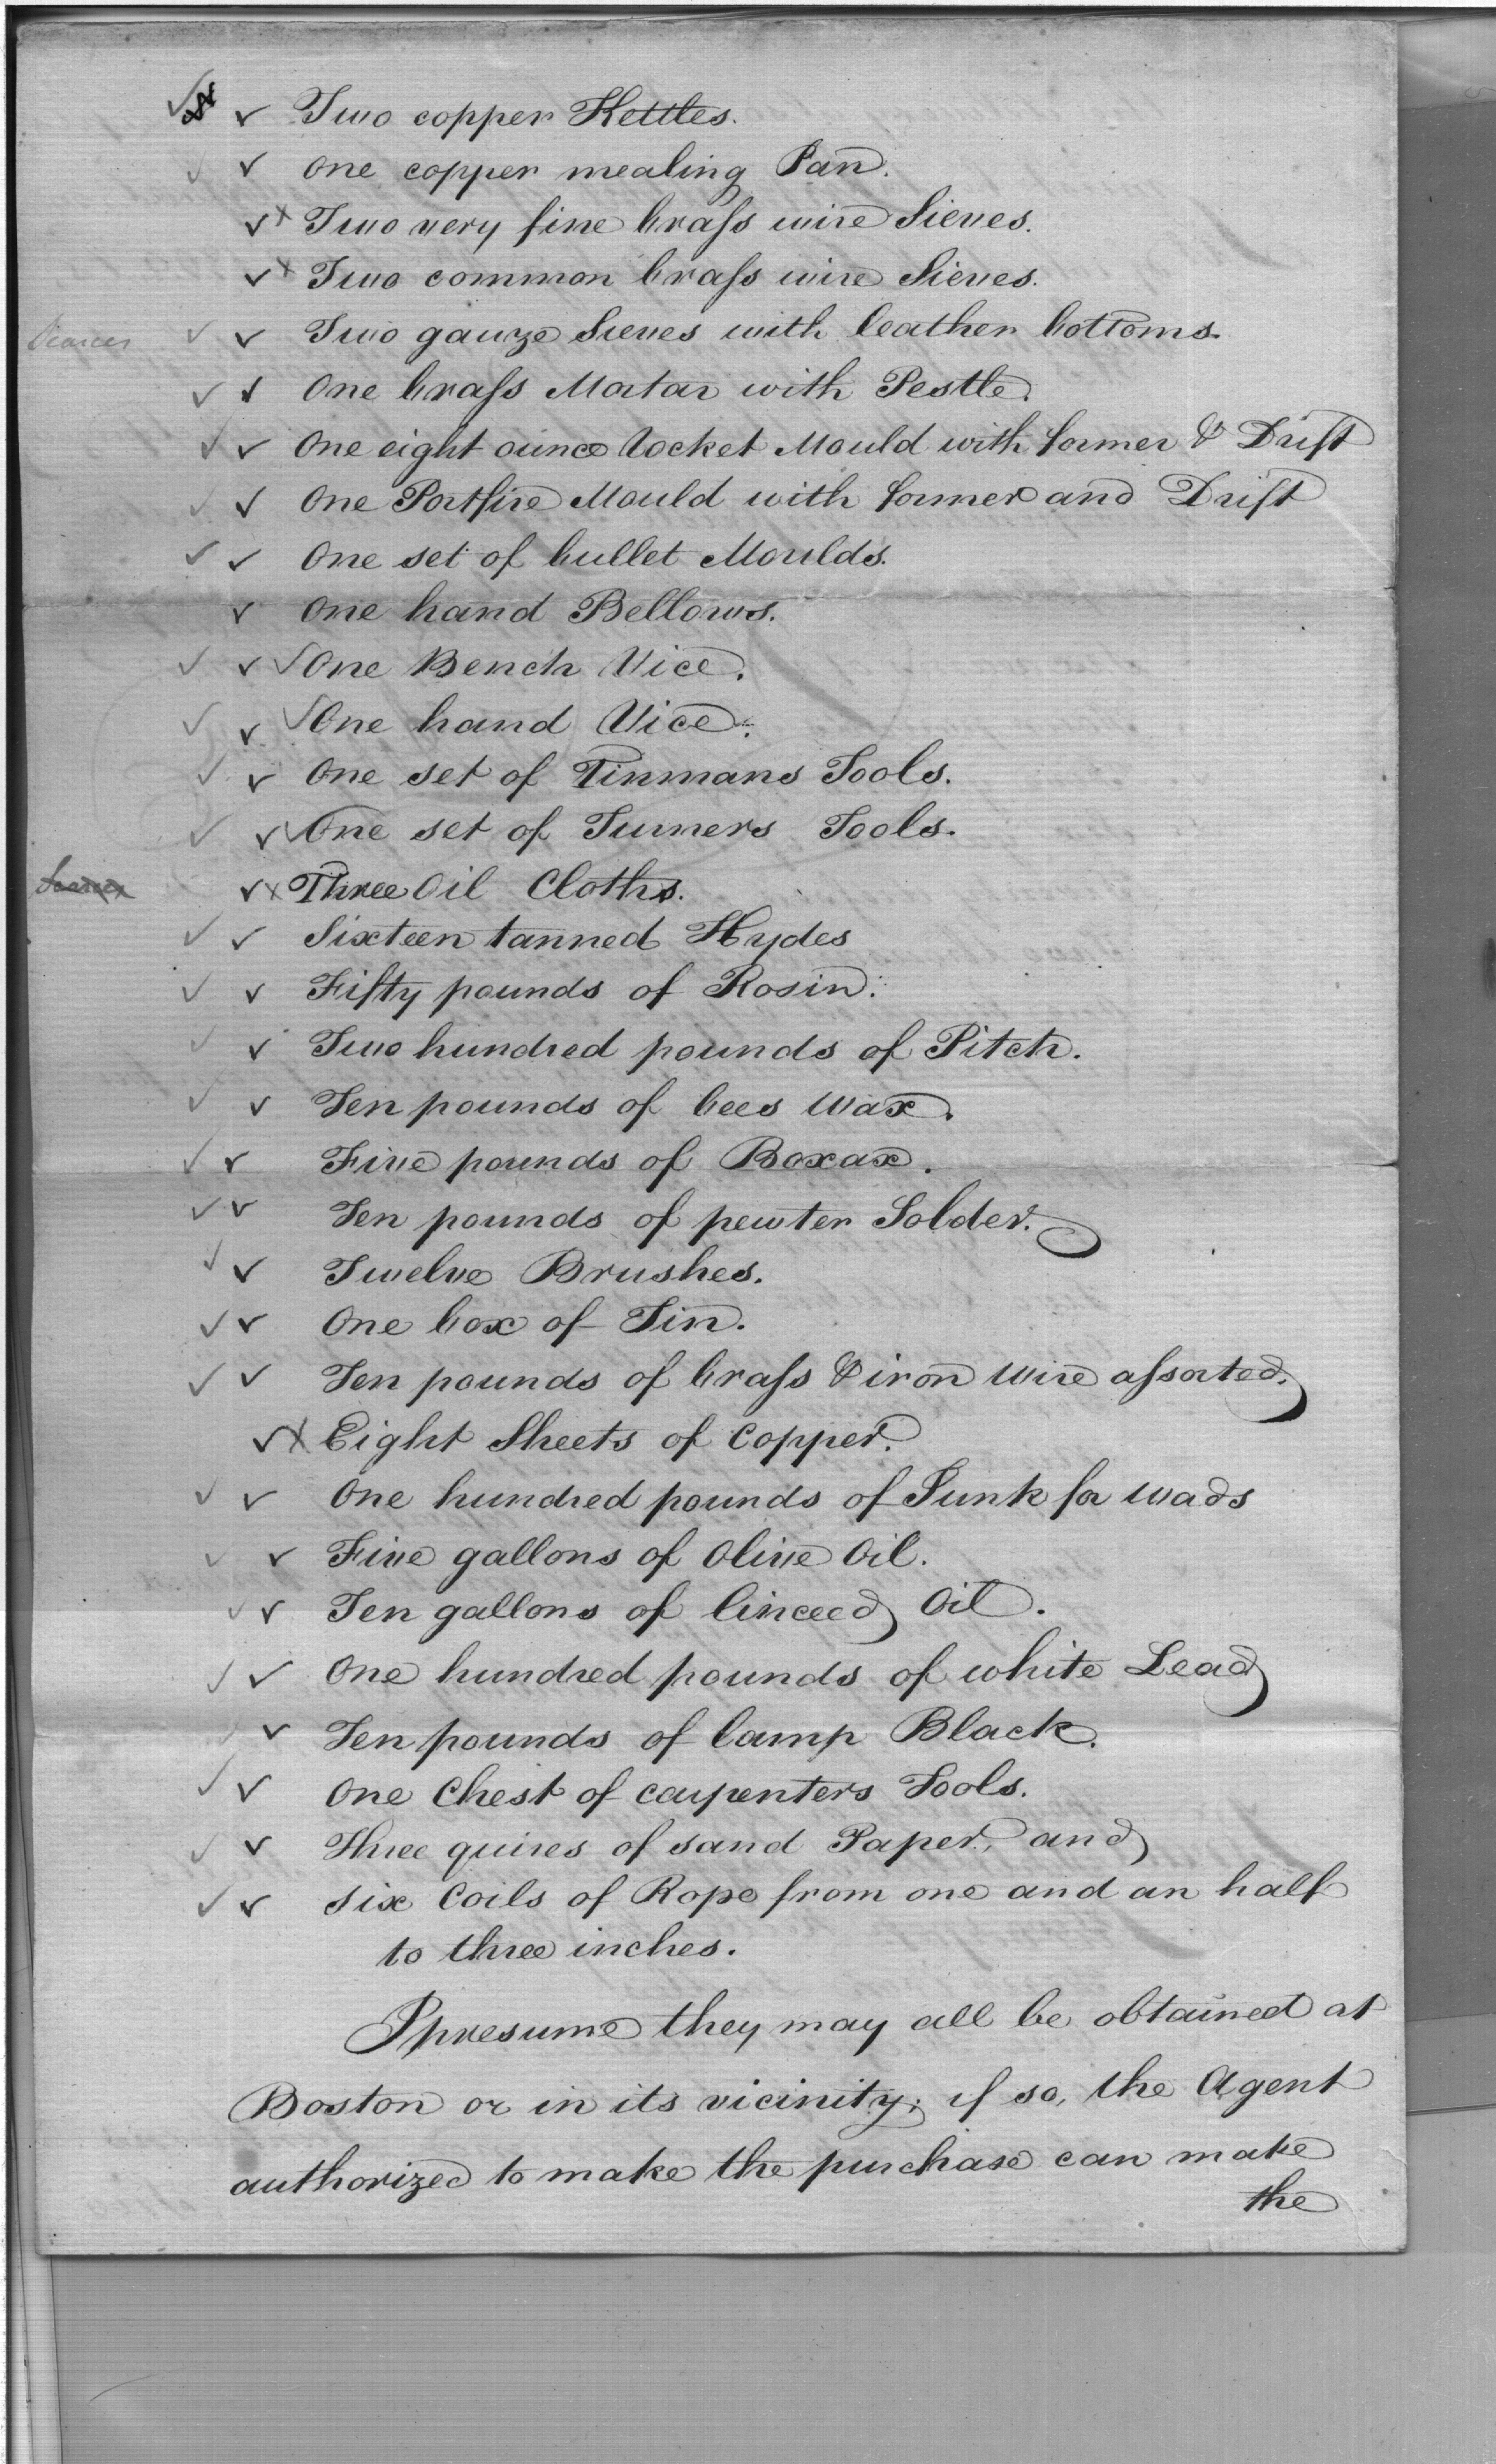 ✓ ✓ Two copper Kettles.
✓ ✓ One copper mealing Pan.
✓ x Two very fine brass wire Sieves.
✓ x Two common brass wire Sieves.
✓ ✓ Two gauze Sieves with leather bottoms.
✓ ✓ One brass Mortar with Pestle.
✓ ✓ One eight ounce Rocket Mould with former & Drift
✓ ✓ One Portfire Mould with former and Drift
✓ ✓ One set of bullet Moulds.
✓ One hand Bellows.
✓ ✓ ✓ One Bench Vice.
✓ ✓ ✓ One hand Vice.
✓ ✓ One set of Tinmans Tools.
✓ ✓ ✓ One set of Turners Tools.
✓ x Three Oil Cloths.
✓ ✓ Sixteen tanned Hydes
✓ ✓ Fifty pounds of Rosin.
✓ ✓ Two hundred pounds of Pitch.
✓ ✓ Ten pounds of bees Wax.
✓ ✓ Five pounds of Boxax.
✓ ✓ Ten pounds of pewter Solder.
✓ ✓ Twelve Brushes.
✓ ✓ One box of Tin.
✓ ✓ Ten pounds of brass & iron Wire assorted.
✓ x Eight Sheets of Copper.
✓ ✓ One hundred pounds of Junk for wads
✓ ✓ Five gallons of Olive Oil.
✓ ✓ Ten gallons of linceed Oil.
✓ ✓ One hundred pounds of white Lead
✓ ✓ Ten pounds of lamp Black.
✓ ✓ One Chest of carpenters Tools.
✓ ✓ Three quires of sand Paper, and
✓ ✓ Six Coils of Rope from one and an half
to three inches.
I presume they may all be obtained at
Boston or in its vicinity; if so, the Agent
authorized to make the purchase can make
the